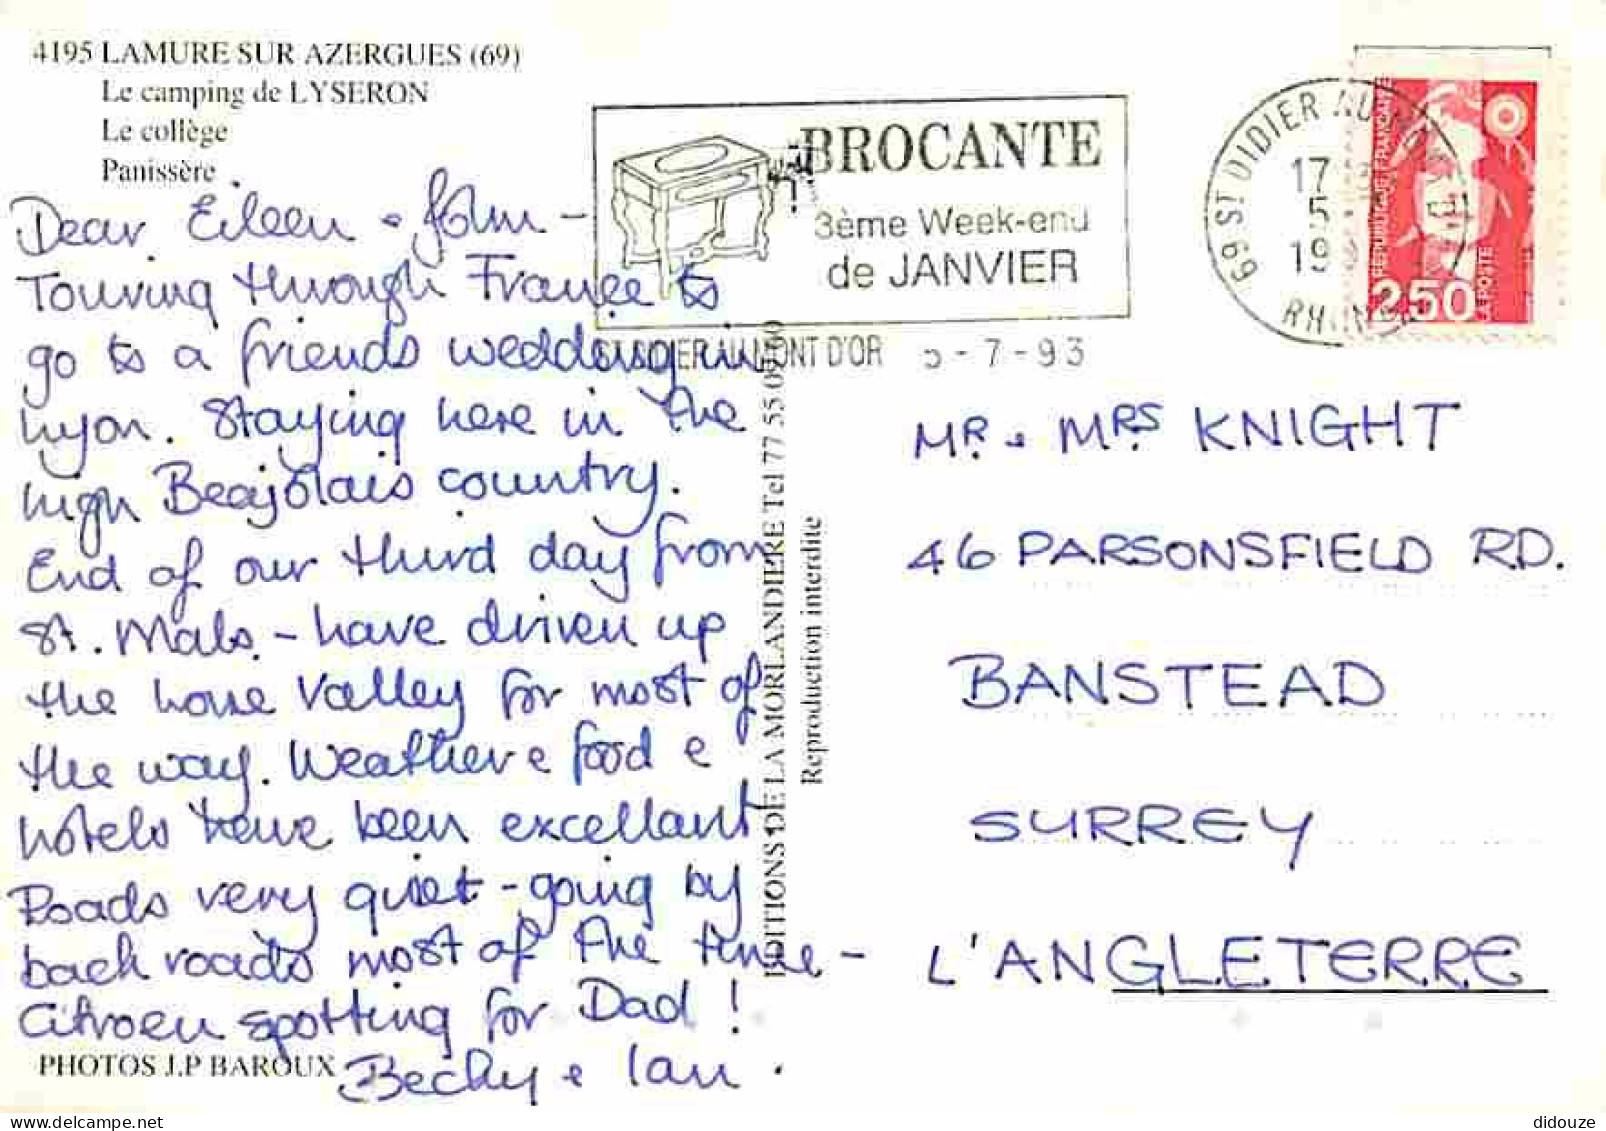 4195 LAMURE SUR AZERGUES (69)
Le camping de LYSERON
Le collège
Panissère
BROCANTE
3ème Week-end
de JANVIER
5-7-93
69 ST DIDIER AU
17
5
19
RHONE
REPUBLIQUE FRANCAISE
2,50
LA POSTE
Dear Eileen & John -
Touring through France to
go to a friends wedding in
Lyon. Staying here in the
high Beajolais country.
End of our third day from
St. Malo - have driven up
the Loire Valley for most of
the way. Weather & food &
hotels have been excellant.
Roads very quiet - going by
back roads most of the time -
Citroen spotting for Dad!
Becky & Ian.
PHOTOS J.P BAROUX
EDITIONS DE LA MORLANDIERE Tel 77 55 09
Reproduction interdite
MR & MRS KNIGHT
46 PARSONSFIELD RD.
BANSTEAD
SURREY
L'ANGLETERRE
didouze